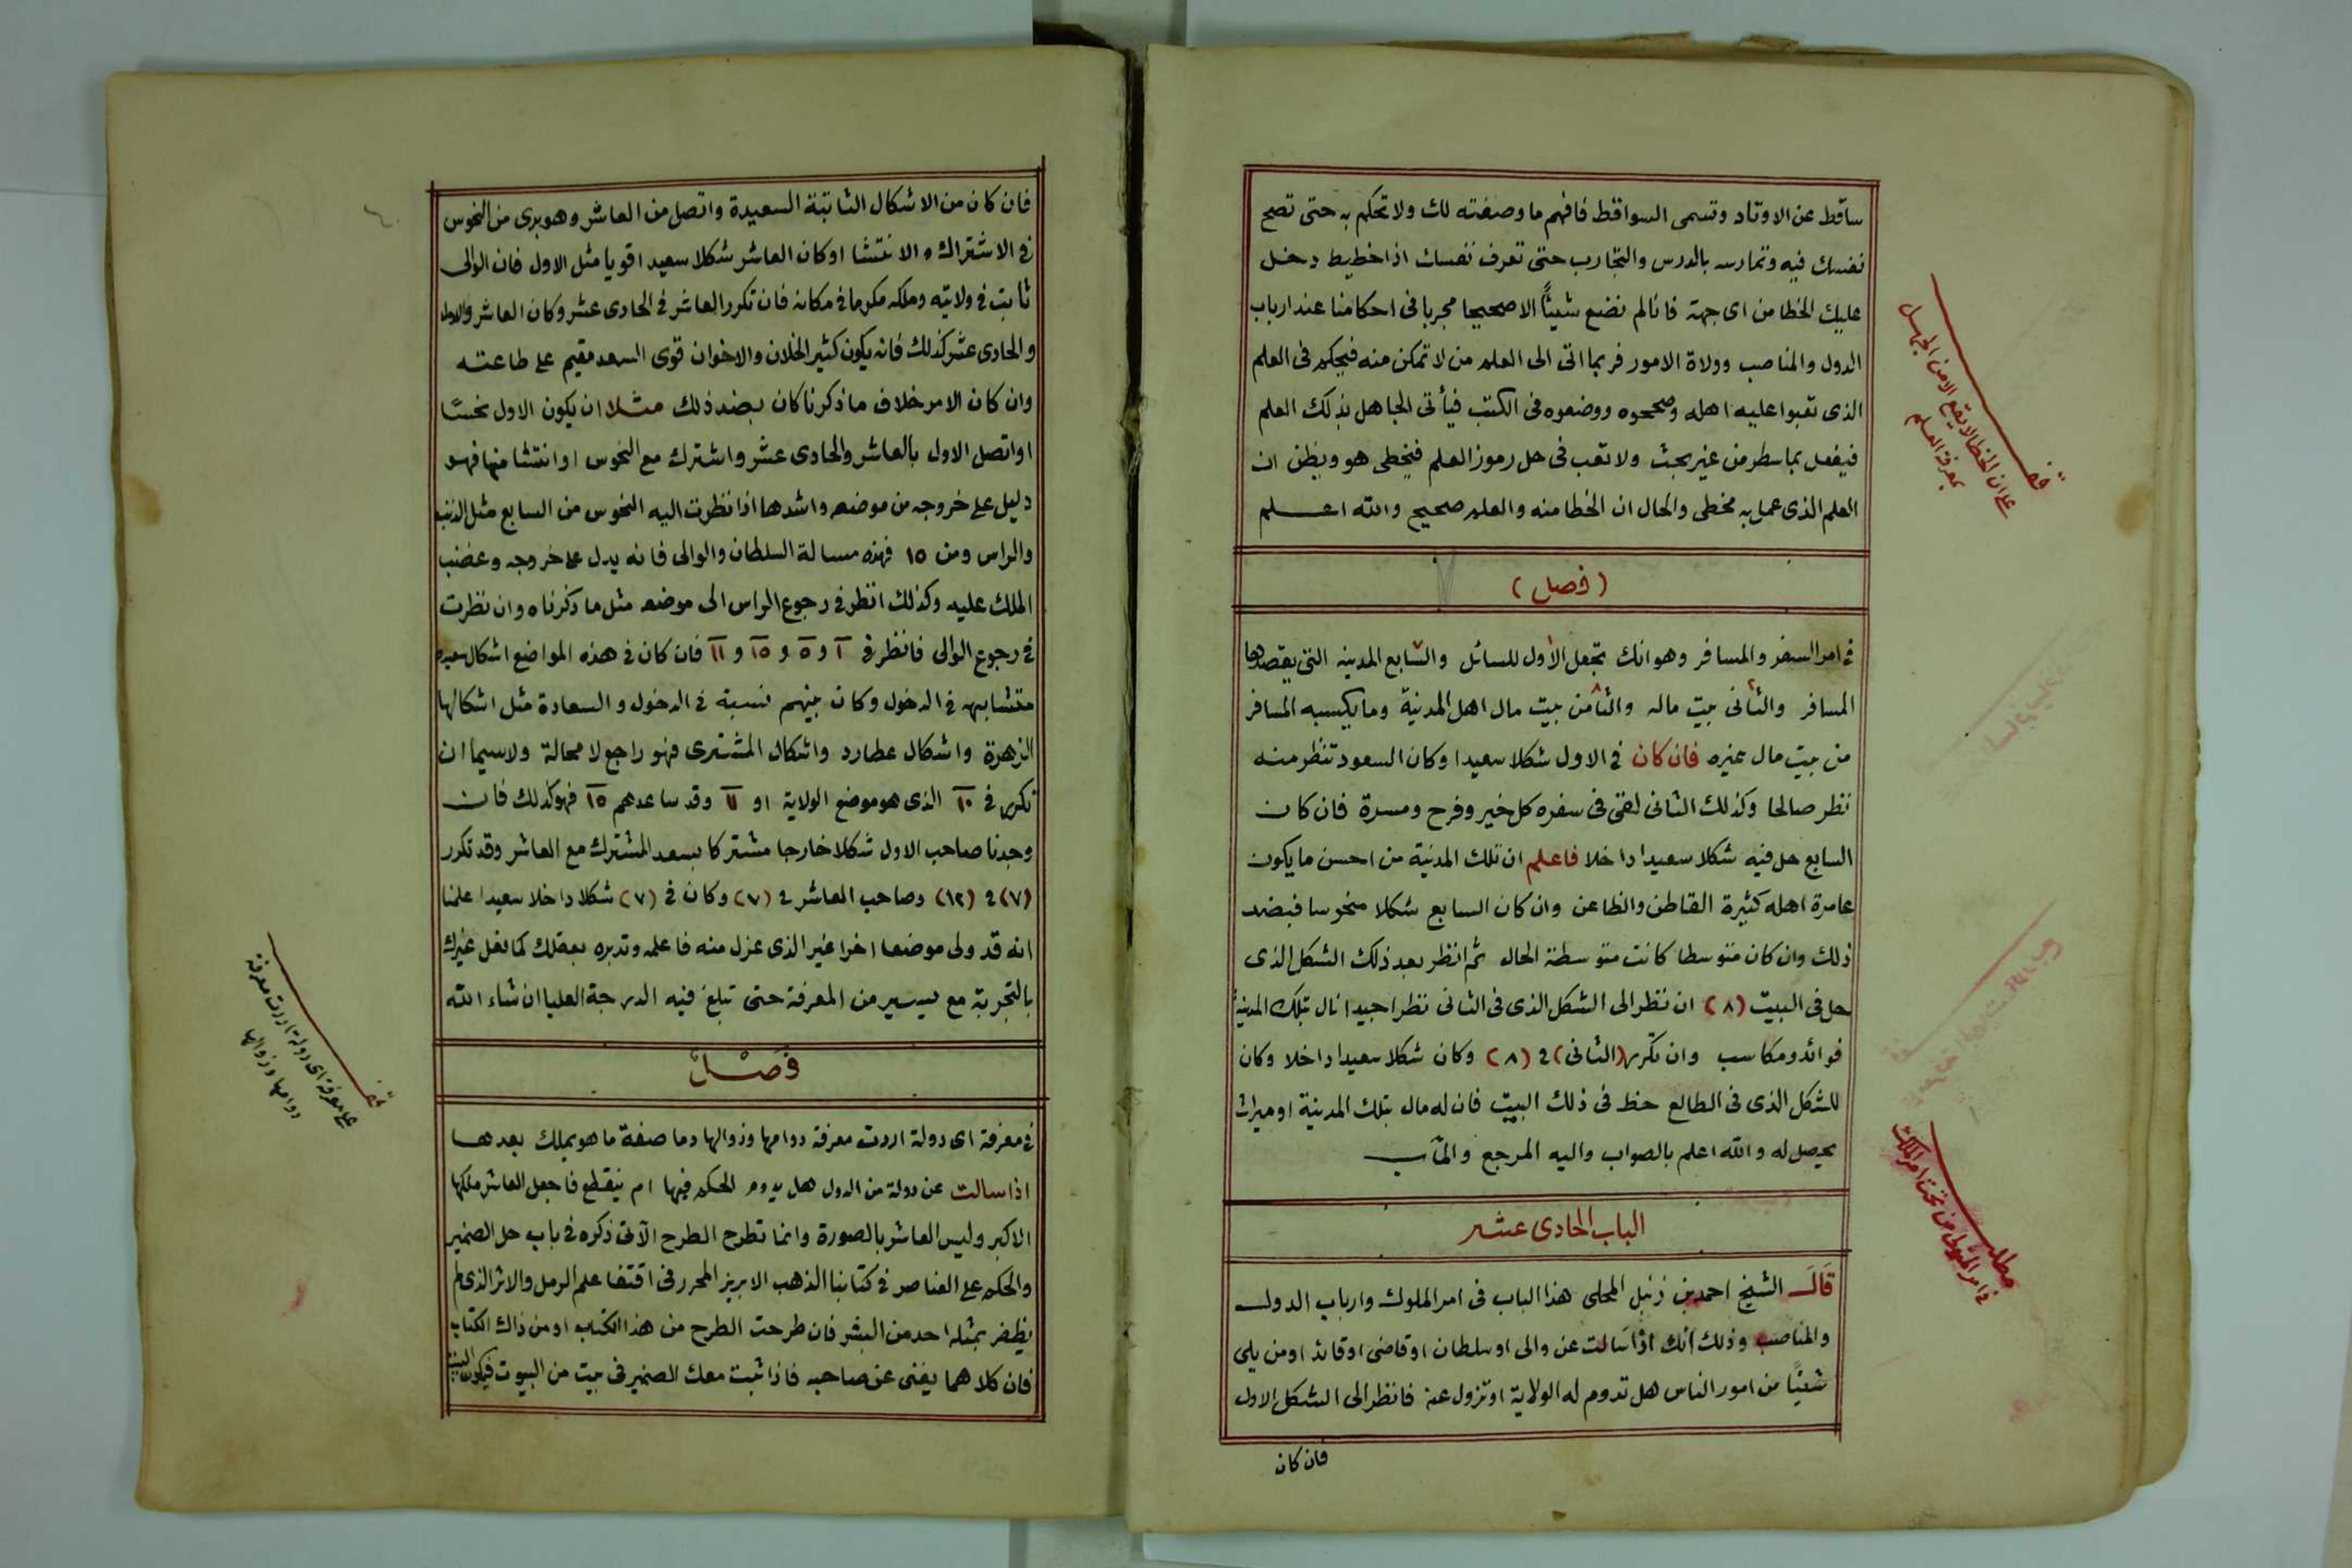 ساقط عن الاوتاد وتسمى السواقط فافهم ما وصفته لك ولا تحكم به حتى تصح
نفسك فيه وتمارسه بالدرس والتجارب حتى تعرف نفسك اذا خطيط دخل
عليك الخطا من اى جهة فانا لم نضع شيئًا الا صحيحا مجربا فى احكامنا عند ارباب
الدول والمناصب وولاة الامور فربما اتى الى العلم من لا تمكن منه فيحكم فى العلم
الذى تعبوا عليه اهله وصححوه ووضعوه فى الكتب فيأتى الجاهل بذلك العلم
فيفعل بما سطر من غير بحث ولا تعب فى حل رموز العلم فيخطى هو ويظن ان
العلم الذى عمل به مخطى والحال ان الخطا منه والعلم صحيح والله اعلم
قف
على ان الخطا لا يقع الا من الجهل
بمعرفة العلم
(فصل)
فى امر السفر والمسافر وهو انك تجعل الأول للسائل والسابع المدينه التى يقصدها
المسافر والثانى بيت ماله والثامن بيت مال اهل المدينة وما يكسبه المسافر
من بيت مال غيره فان كان فى الاول شكلا سعيدا وكان السعود تنظر منه
نظر صالحا وكذلك الثانى لقى فى سفره كل خير وفرح ومسرة فان كان
السابع حل فيه شكلا سعيدا داخلا فاعلم ان تلك المدنية من احسن ما يكون
عامرة اهله كثيرة القاطن والظاعن وان كان السابع شكلا منحوسا فبضد
ذلك وان كان متوسطا كانت متوسطة الحال ثم انظر بعد ذلك الشكل الذى
حل فى البيت (٨) ان نظر الى الشكل الذى فى الثانى نظرا جيدا نال بتلك المدينة
فوائد ومكاسب وان تكرر (الثانى) فى (٨) وكان شكلا سعيدا داخلا وكان
للشكل الذى فى الطالع حظ فى ذلك البيت فان له مال بتلك المدينة او ميراث
يحصل له والله اعلم بالصواب واليه المرجع والمآب
الباب الحادى عشر
مطلب
قال الشيخ احمد بن زنبل المحلى هذا الباب فى امر الملوك وارباب الدول
والمناصب وذلك أنك اذا سالت عن والى او سلطان او قاضى او قائد او من يلى
شيئًا من امور الناس هل تدوم له الولاية او تزول عنه فانظر الى الشكل الاول
فان كان
فان كان من الاشكال الثابتة السعيدة واتصل من العاشر وهو برى من النحوس
فى الاشتراك والانتشا او كان العاشر شكلا سعيدا قويا مثل الاول فان الوالى
ثابت فى ولايته وملكه مكرما فى مكانه فان تكرر العاشر فى الحادى عشر وكان العاشر والاول
والحادى عشر كذلك فانه يكون كثير الخلان والاخوان قوى السعد مقيم على طاعته
وان كان الامر خلاف ما ذكرنا كان بضد ذلك مثلا ان يكون الاول نحسًا
او اتصل الاول بالعاشر والحادى عشر واشترك مع النحوس او انتشا منها فهو
دليل على خروجه من موضعه واشدها اذا نظرت اليه النحوس من السابع مثل الذنب
والراس ومن ١٥ فهذه مسالة السلطان والوالى فانه يدل على خروجه وغضب
الملك عليه وكذلك انظر فى رجوع الراس الى موضعه مثل ما ذكرناه وان نظرت
فى رجوع الوالى فانظر فى ١ و ٥ و ١٥ و ١١ فان كان فى هذه المواضع اشكال سعيده
متشابهه فى الدخول وكان بينهم نسبة فى الدخول والسعادة مثل اشكالها
الزهرة واشكال عطارد واشكال المشترى فهو راجع لا محالة ولاسيما ان
تكرر فى ١٠ الذى هو موضع الولاية او ١١ وقد ساعدهم ١٥ فهو كذلك فان
وجدنا صاحب الاول شكلا خارجا مشتركا بسعد المشترك مع العاشر وقد تكرر
(٧) فى (١٢) وصاحب العاشر فى (٧) وكان فى (٧) شكلا داخلا سعيدا علمنا
انه قد ولى موضعا اخرا غير الذى عزل منه فاعلمه وتدبره بعقلك كما فعل غيرك
بالتجربة مع يسير من المعرفة حتى تبلغ فيه الدرجة العليا ان شاء الله
فصل
فى معرفة اى دولة اردت معرفة دوامها وزوالها وما صفة ما هو يملك بعدها
اذا سالت عن دولة من الدول هل يدوم الحكم فيها ام ينقطع فاجعل العاشر ملكها
الاكبر وليس العاشر بالصورة وانما تطرح الطرح الآتى ذكره فى باب حل الضمير
والحكم على العناصر فى كتابنا الذهب الابريز المحرر فى اقتفا علم الرمل والاثر الذى لم
يظفر بمثله احد من البشر فان طرحت الطرح من هذا الكتاب او من ذاك الكتاب
فان كلاهما يغنى عن صاحبه فاذا ثبت معك الضمير فى بيت من البيوت فيكون البيت
قف
على معرفة اى دولة اردت معرفة
دوامها وزوالها